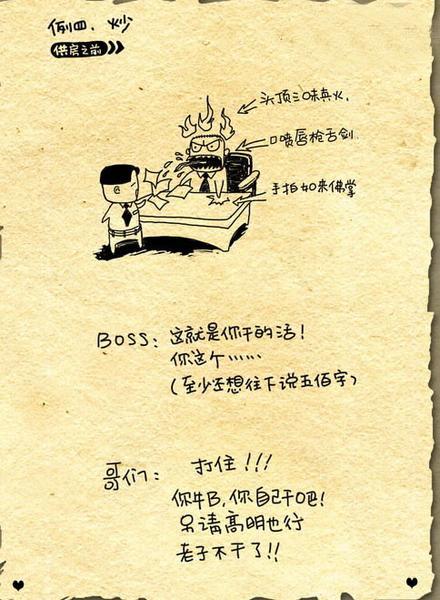 例四、炒
供房之前
头顶三味真火,
口喷唇枪舌剑
手拍如来佛掌
BOSS: 这就是你干的活!
你这个……
(至少还想往下说五佰字)
哥们: 打住!!!
你牛B,你自己干吧!
另请高明也行
老子不干了!!